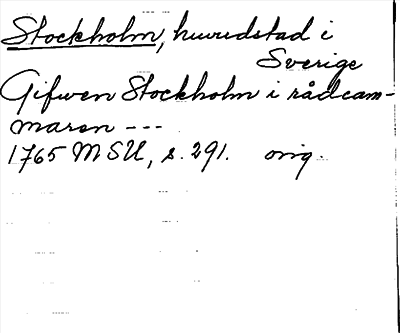 Stockholm, huvudstad i
Sverige
Gifwen Stockholm i rådcam-
maren ---
1765 MSU, s. 291. orig.